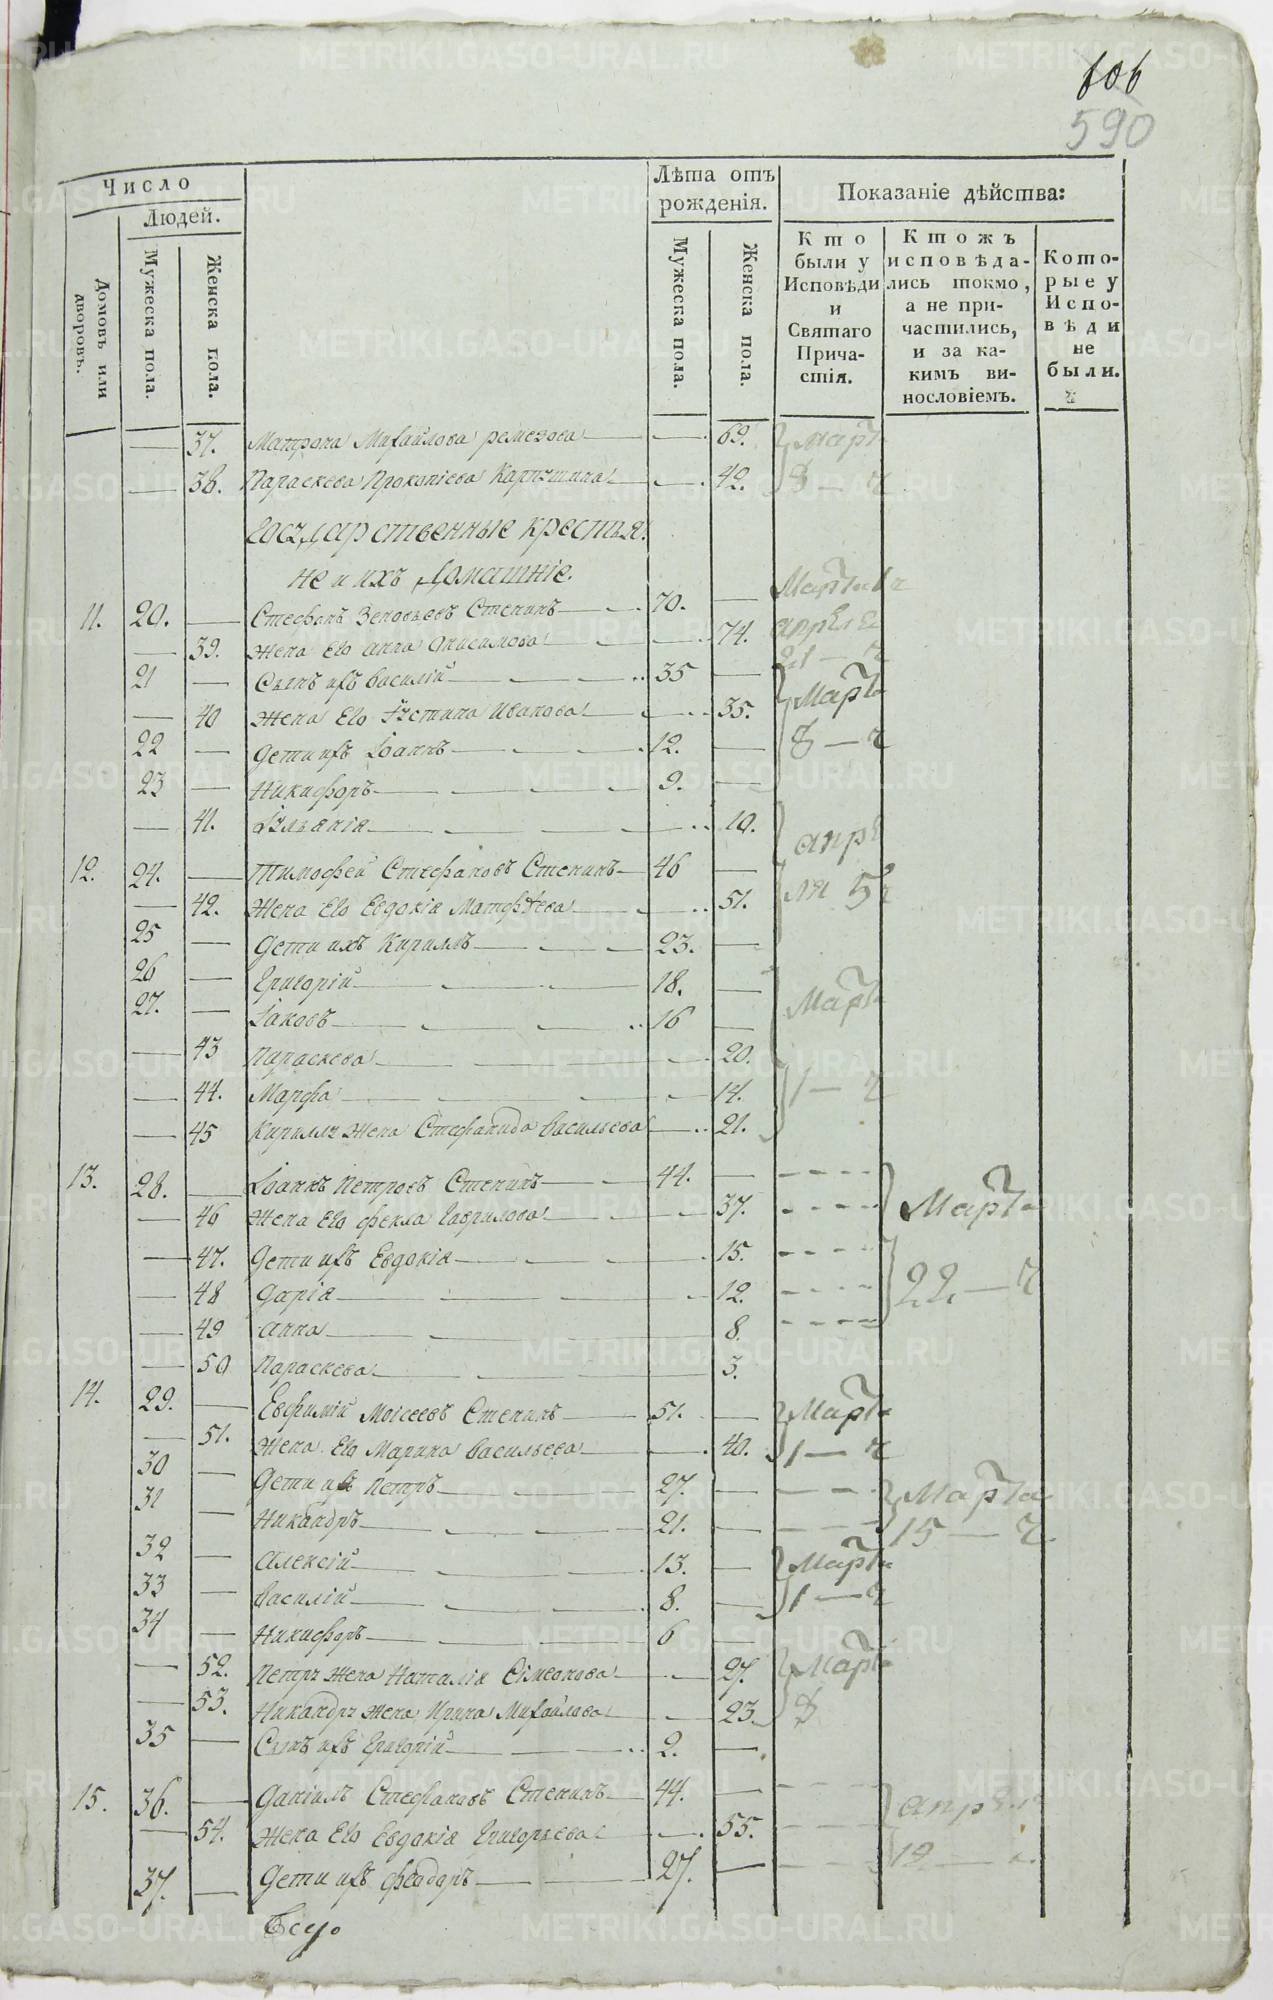 606
590
Число
Людей.
Домовъ или дворовъ.
Мужеска пола.
Женска пола.
Лѣта отъ рожденія.
Мужеска пола.
Женска пола.
Показаніе дѣйства:
Кто были у Исповѣди и Святаго Причастія.
Ктожъ исповѣдались токмо, а не причастились, и за какимъ винословіемъ.
Которые у Исповѣди не были.
— 37. Матрона Михайлова ремезова — 69. Март
— 38. Параскева Прокопіева Карпушина — 42. 8 — ч
Государственные крестья
не и ихъ Домашніе.
11. 20. — Стефанъ Зеновьевъ Стенинъ — 70. — Марта
— 39. Жена Его Анна Анисимова — 74. апреля
21 — ч
21 — Сынъ ихъ Василій — 35 — Марта
— 40 Жена Его Іустина Иванова — 35.
22 — Дети ихъ Іоаннъ — 12. — 8 — ч
23 — Никифоръ — 9. —
— 41. — 10. апре
12. 24. — Тимофей Стефановъ Стенинъ — 46 — ля 5 ч
— 42. Жена Его Евдокія Матфѣева — 51.
25 — Дети ихъ Кириллъ — 23. —
26 — Григорій — 18. —
27. — Іаковъ — 16 — Марта
— 43 Параскева — 20.
— 44. Марфа — 14. 1 — ч
— 45 Кирилла Жена Стефанида Васильева — 21.
13. 28. — Іоаннъ Петровъ Стенинъ — 44. —
— 46 Жена Его Фекла Гаврилова — 37. Марта
— 47. Дети ихъ Евдокія — 15.
— 48 Дарія — 12. 22 — ч
— 49 Анна — 8.
— 50 Параскева — 3.
14. 29. — Евфимій Моісеевъ Стенинъ — 51. — Марта
— 51. Жена Его Марина Васильева — 40. 1 — ч
30 — Дети ихъ Петръ — 27. — Марта
31 — Никандръ — 21. — 15 — ч
32 — Алексій — 13. — Марта
33 — Василій — 8. — 1 — ч
34 — Никифоръ — 6 —
— 52. Петра Жена Наталія Сімеонова — 27. Марта
— 53. Никандра Жена Ирина Михайлова — 23. 8
35 — Сынъ ихъ Григорій — 2. —
15. 36. — Даніилъ Стефановъ Стенинъ — 44. — апреля
— 54. Жена Его Евдокія Григорьева — 55.
37. — Дети ихъ Феодоръ — 27. — 19 —
METRIKI.GASO-URAL.RU